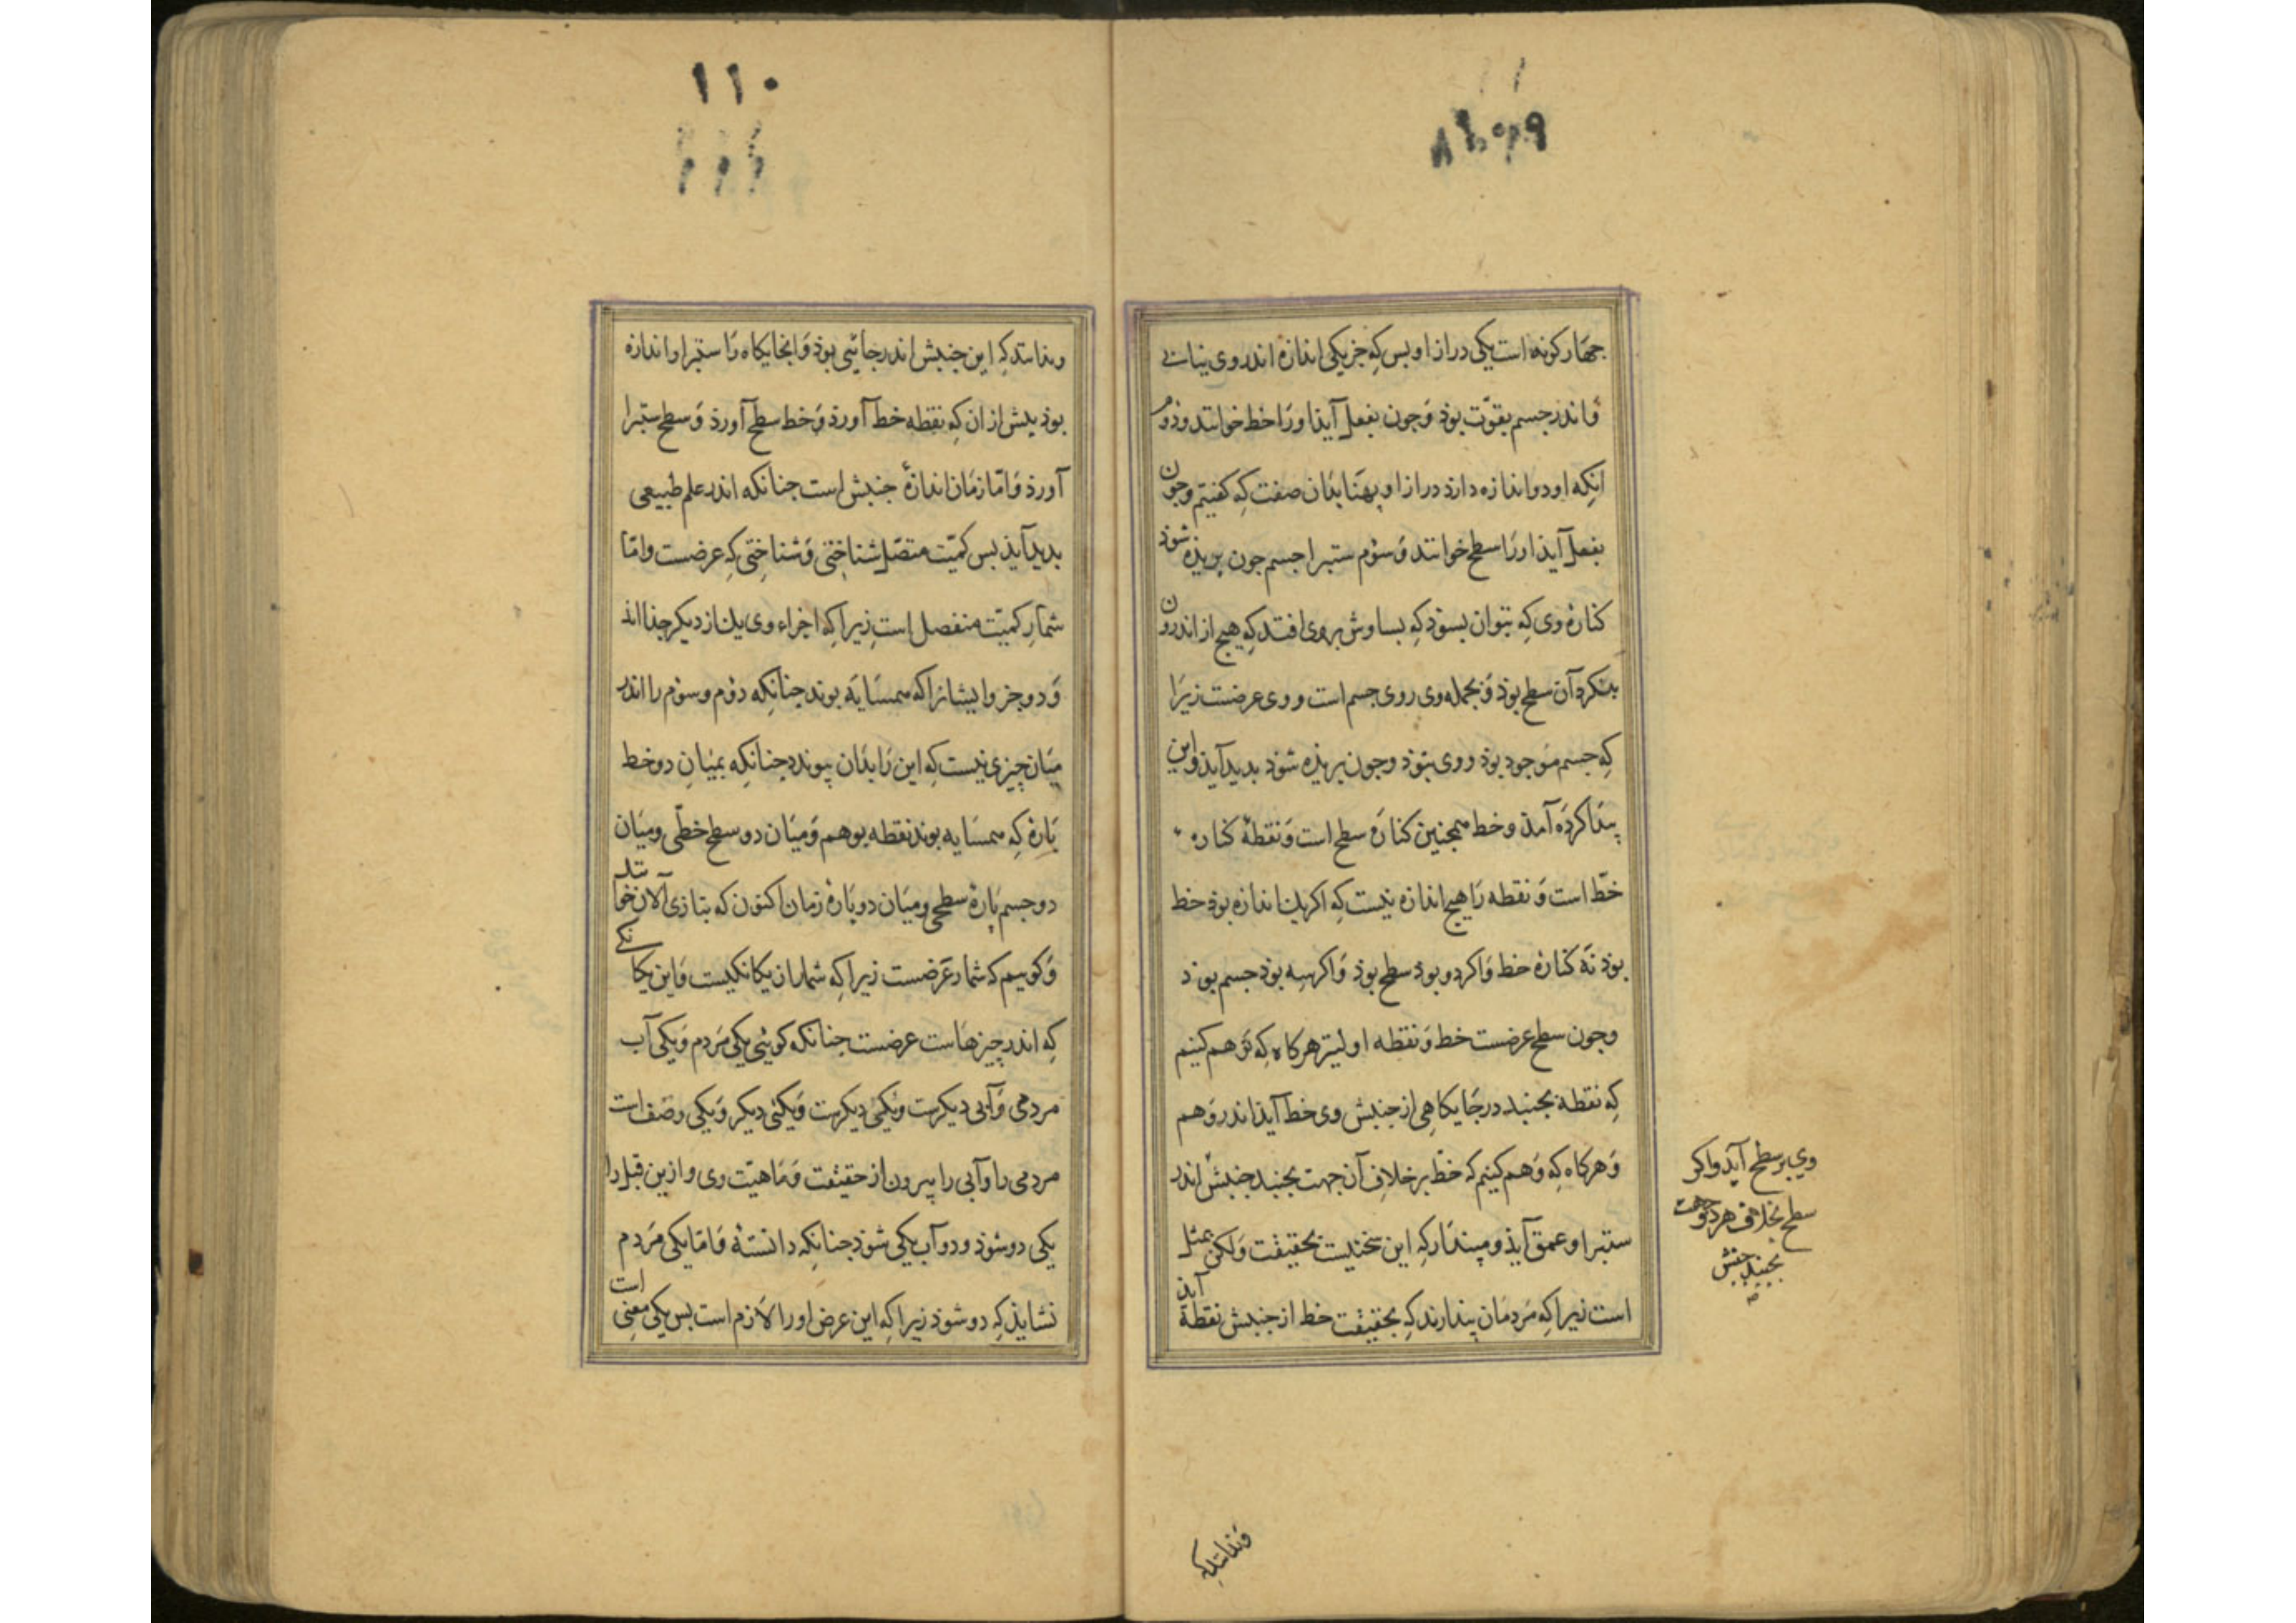 جهار کونه است یکی درازا و بس که جز یکی اندازه اندر وی نیابی
و اندر جسم بقوّت بوذ و جون بفعل آیذ او را خط خوانند و دوم
انکه او دو اندازه دارذ درازا و پهنا بذان صفت که کفتیم و جون
بفعل آیذ او را سطح خوانند و سوم ستبرا جسم جون بریذه شوذ
کنارهٔ وی که بتوان بسوذ که بساوش بر وی افتد که هیج از اندرون
بنکرد آن سطح بوذ و بجمله وی روی جسم است و وی عرضست زیرا
که جسم موجود بوذ و وی نبوذ و جون بریذه شوذ بدید آیذ و این
پیذا کرده آمذ و خط همجنین کناره سطح است و نقطهٔ کناره
خطّ است و نقطه را هیج اندازه نیست که اکر یک اندازه بوذ خط
بوذ نه کنارهٔ خط و اکر دو بوذ سطح بوذ و اکر سه بوذ جسم بوذ
و جون سطح عرضست خط و نقطه اولیتر هرکاه که توهم کنیم
که نقطه بجنبد در جایکاهی از جنبش وی خط آیذ اندر وهم
و هرکاه که وهم کنیم که خطّ بر خلاف آن جهت بجنبد جنبش اندر
ستبرا و عمق آیذ و مپندار که این سخنیست بحقیقت و لکن بمثل
است زیرا که مردمان پندارند که بحقیقت خط از جنبش نقطه آیذ
وی بر سطح آید و اکر
سطح بخلاف هر دو جهت
بجنبد جنبش
و ندانند که
۱۱۰
و ندانند که این جنبش اندر جائی بوذ و انجایکاه را ستبرا و اندازه
بوذ بیش از ان که نقطه خط آورذ و خط سطح آورذ و سطح ستبرا
آورذ و امّا زمان اندازهٔ جنبش است جنانکه اندر علم طبیعی
بدید آیذ بس کمیّت متصّل شناختی و شناختی که عرضست و امّا
شمار کمیّت منفصل است زیرا که اجزاء وی یک از دیکر جذا اند
و دو جزو ایشانرا که همسایه بوند جنانکه دوم و سوم را اندر
میان چیزی نیست که این را بذان پیوندد جنانکه بمیان دو خط
پاره که همسایه بوند نقطه بوهم و میان دو سطح خطّی و میان
دو جسم پارهٔ سطحی و میان دو پارهٔ زمان اکنون که بتازی الآن خوانند
و کوییم که شمار عرضست زیرا که شمار ان یکانکیست و این یکانکی
که اندر چیزهاست عرضست جنانکه کوئی یکی مردم و یکی آب
مردمی و آبی دیکرست و یکی دیکرست و یکئی دیکر و یکی وصف است
مردمی را و آبی را بیرون از حقیقت و ماهیّت وی و ازین قبل را
یکی دو شوذ و دو آب یکی شوذ جنانکه دانستهٔ و امّا یکی مردم
نشایذ که دو شوذ زیرا که این عرض او را لازم است بس یکی معنی است